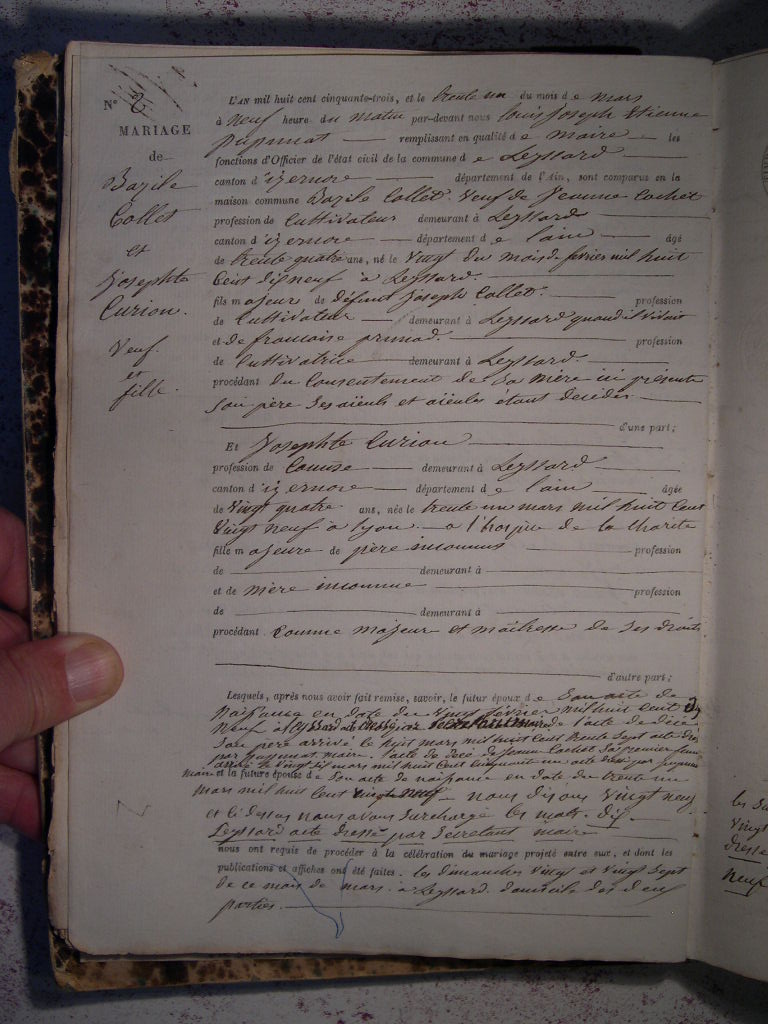 N° 2
MARIAGE
de
Bazile
Collet
et
Josephte
Curion.
Veuf
et
fille.
L'AN mil huit cent cinquante-trois, et le trente un du mois de mars
à neuf heure du matin par-devant nous Louis Joseph Etienne
remplissant en qualité de maire les
fonctions d'Officier de l'état civil de la commune de Leyssard
canton d'izernore département de l'Ain, sont comparus en la
maison commune Bazile Collet. Veuf de Jeanne Cochet
profession de Cultivateur demeurant à Leyssard
canton d'izernore département de l'ain âgé
de trente quatre ans, né le vingt du mois de fevrier mil huit
Cent dix neuf à Leyssard.
fils majeur de défunt Joseph Collet. profession
de Cultivateur demeurant à Leyssard quand il vivait
et de francoise prunad. profession
de Cultivatrice demeurant à Leyssard.
procédant du Consentement de sa mère ici présente
son père ses aïeuls et aïeules étant décédés
d'une part;
Et Josephte Curion
profession de demeurant à Leyssard
canton d'izernore département de l'ain âgée
de vingt quatre ans, née le trente un mars mil huit Cent
vingt neuf à lyon à l'hospice de la charité
fille majeure de père inconnus profession
de demeurant à
et de mère inconnue profession
de demeurant à
procédant Comme majeur et maîtresse de ses droits
d'autre part;
Lesquels, après nous avoir fait remise, savoir, le futur époux de Son acte de
Naissance en date du vingt fevrier mil huit Cent dix
neuf à Leyssard l'acte de décé
son père arrivé le huit mars mil huit Cent trente Sept acte
par maire. l'acte de décé de Jeanne Cochet sa premier
arrivé le vingt six mars mil huit Cent cinquante un acte par
maire et la future épouse de Son acte de naissance en date du trente un
mars mil huit Cent vingt neuf nous disons vingt neuf
et ci dessus nous avons Surchargé les mots. dix.
Leyssard acte dressé par Secretant maire
nous ont requis de procéder à la célébration du mariage projeté entre eux, et dont les
publications et affiches ont été faites. les dimanches vingt et vingt Sept
de ce mois de mars. à Leyssard. domicile des deux
parties.
les
vingt
dresse
neuf